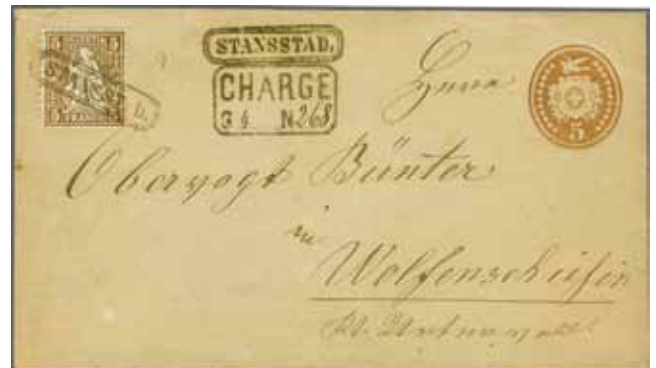 STANSSTAD.
CHARGE
N 268
5
Herrn
Obervogt Bünter
in
Wolfenschießen